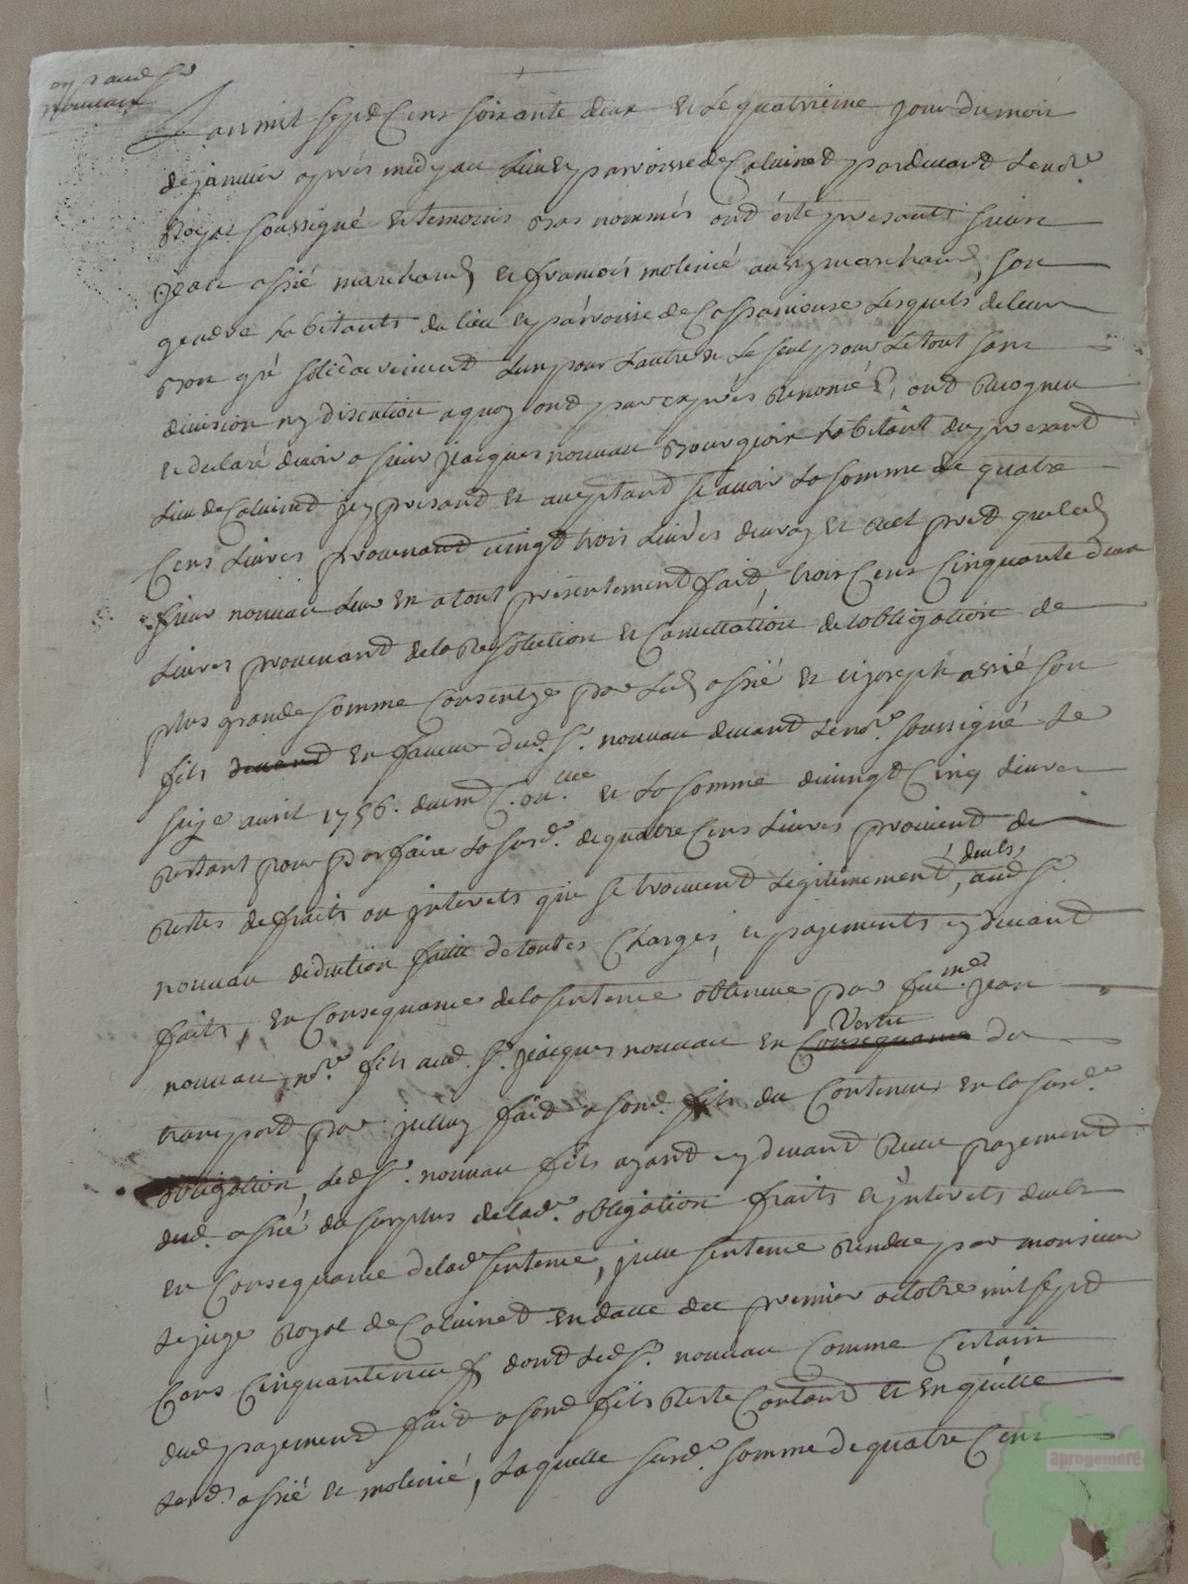 aud. Sr.
nouveau
L'an mil sept Cens soixante deux et le quatrieme jour du mois
de janvier apres midy au lieu et parroisse de Calvinet pardevant le nore.
Royal soussigné et temoins bas nommés ont été presants sieur
jean assié marchand et francois molenié aussy marchand, son
gendre habitants du lieu et parroisse de Cassaniouse lesquels de leur
bon gré solidairement l'un pour l'autre et le seul pour le tout sans
division ny discution a quoy ont par exprès renoncé, ont recogneu
et declaré devoir a sieur jacques nouveau Bourgeois habitant du presant
lieu de Calvinet jcy presand et aceptand scavoir la somme de quatre
Cens livres provenand vingt trois livres de vray et réel pret que led.
sieur nouveau leur en a tout presentement fait, trois Cens Cinquante deux
livres provenand de la Resolution et Cancellation de l'obligation de
plus grande somme Consentye par led. assié et et joseph assié son
fils devand en faveur dud. Sr. nouveau devant le nore. soussigné le
seize avril 1756. duemt C.on.lée et la somme de vingt Cinq livres
Restant pour parfaire la susd.e de quatre Cens livres provient de
Restes de fraits ou jnterets qui se trouvent legitimement deubs, aud. Sr.
nouveau deduction faitte de toutes Charges, et payements cy devant
faits, en Consequance de la sentence obtenue par feu me. jean
nouveau, nore. fils aud. Sr. jacques nouveau en Consequance Vertu du
transport par jcelluy fait a sond. fils du Contenu en la susd.e
obligation, led. Sr. nouveau fils ayant cy devand Receu payement
dud. assié du surplus de lad.e obligation fraits et jnterets deubs
en Consequance de lad. sentence, jcelle sentence Rendue par monsieur
le juge Royal de Calvinet en datte du premier octobre mil sept
Cens Cinquante neuf dont led. Sr. nouveau Comme Certain
dud. payement fait a sond. fils Reste Contand et en quitte
lesd. assié et molenié, laquelle susd.e somme de quatre Cens
aprogemere